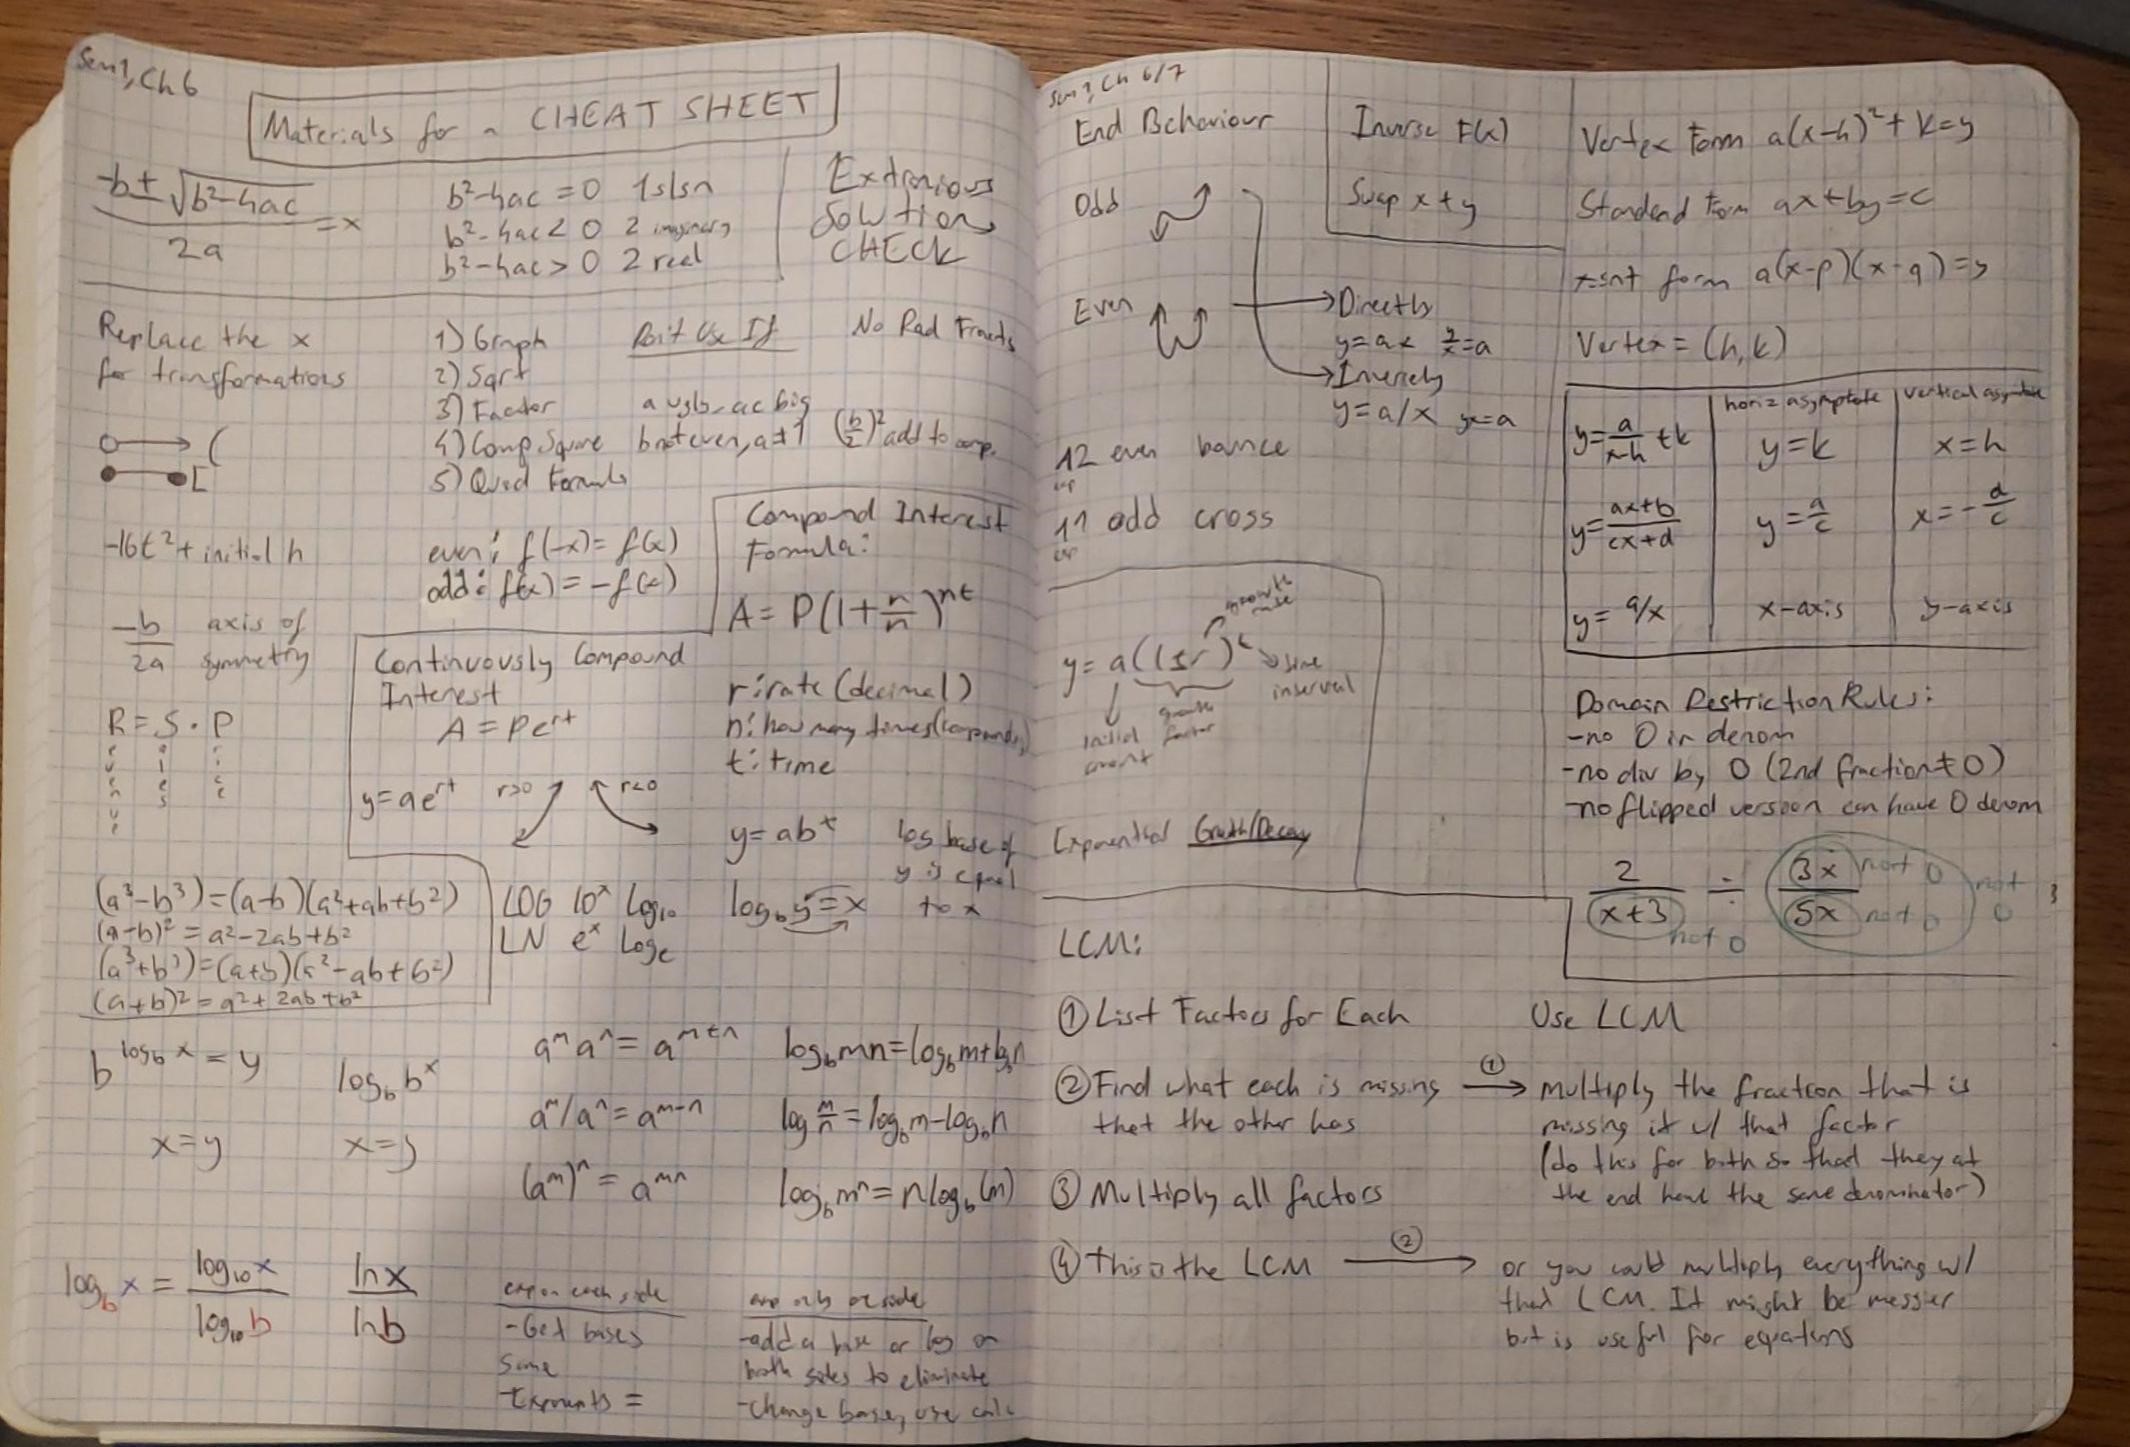 Sem 1, Ch 6
Materials for a CHEAT SHEET
-b ± √b²-4ac / 2a = x
b²-4ac = 0 1 sln
b²-4ac < 0 2 imaginary
b²-4ac > 0 2 real
Extranious
Solutions
CHECK
Replace the x
for transformations
1) Graph
2) Sqrt
3) Factor
4) Comp Square
5) Quad Formula
Don't Use If
a ugly, ac big
b not even, a≠1
No Rad Fracts
(b/2)² add to comp.
(
[
-16t² + initial h
even: f(-x) = f(x)
odd: f(x) = -f(x)
Compound Interest
Formula:
A = P(1 + r/n)^nt
r: rate (decimal)
n: how many times (compounds)
t: time
-b/2a axis of
symmetry
Continuously Compound
Interest
A = Pe^rt
y = ae^rt r>0 r<0
R = S · P
revenue
sales
price
y = ab^t
log base of
y is equal
to x
log_b y = x
(a³-b³) = (a-b)(a²+ab+b²)
(a-b)² = a²-2ab+b²
(a³+b³) = (a+b)(a²-ab+b²)
(a+b)² = a²+2ab+b²
LOG 10^x log₁₀
LN e^x Log_e
b^log_b x = y
x = y
log_b b^x
x = y
a^m a^n = a^m+n
a^m/a^n = a^m-n
(a^m)^n = a^mn
log_b mn = log_b m + log_b n
log m/n = log_b m - log_b n
log_b m^n = n log_b (m)
log_b x = log₁₀ x / log₁₀ b
ln x / ln b
exp on each side
- Get bases
same
- Exponents =
exp only one side
- add a base or log on
both sides to eliminate
- change base, use calc
Sem 1, Ch 6/7
End Behaviour
Odd
Even
Inverse F(x)
Swap x + y
Directly
y = ax y/x = a
Inversely
y = a/x yx = a
12 even bounce
up
11 odd cross
up
y = a(1±r)^t
growth
time
interval
growth
factor
initial
Exponential Growth/Decay
Vertex form a(x-h)² + k = y
Standard form ax + by = c
x-int form a(x-p)(x-q) = y
Vertex = (h, k)
horiz asymptote vertical asymptote
y = a/x-h + k y = k x = h
y = ax+b/cx+d y = a/c x = -d/c
y = a/x x-axis y-axis
Domain Restriction Rules:
- no 0 in denom
- no div by 0 (2nd fraction ≠ 0)
- no flipped version can have 0 denom
2/x+3 ÷ 3x/5x
not 0
not 0
not 0
not 0
LCM:
① List Factors for Each
② Find what each is missing
that the other has
③ Multiply all factors
④ This is the LCM
Use LCM
① → Multiply the fraction that is
missing it w/ that factor
(do this for both so that they at
the end have the same denominator)
② → or you could multiply everything w/
that LCM. It might be messier
but is useful for equations